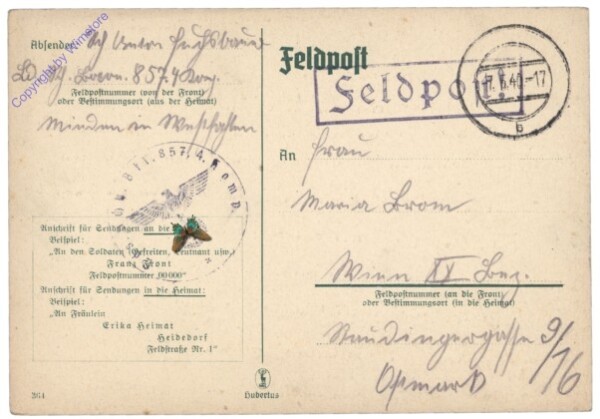 Copyright by Winelore
Absender: Sch Anton Fuchsbauer
Ldsch. Batn. 857. 4 Komp.
Feldpostnummer (von der Front)
oder Bestimmungsort (aus der Heimat)
Minden in Westfalen
857. 4. Komp.
Anschrift für Sendungen an die
Beispiel:
„An den Soldaten (Gefreiten, Leutnant usw.)
Franz Front
Feldpostnummer 00000"
Anschrift für Sendungen in die Heimat:
Beispiel:
„An Fräulein
Erika Heimat
Heidedorf
Feldstraße Nr. 1"
364
Feldpost
Feldpost
b
An Frau
Maria Brom
Wien XX Bez.
Feldpostnummer (an die Front)
oder Bestimmungsort (in die Heimat)
Staudingergasse 9/16
Ostmark
Hubertus